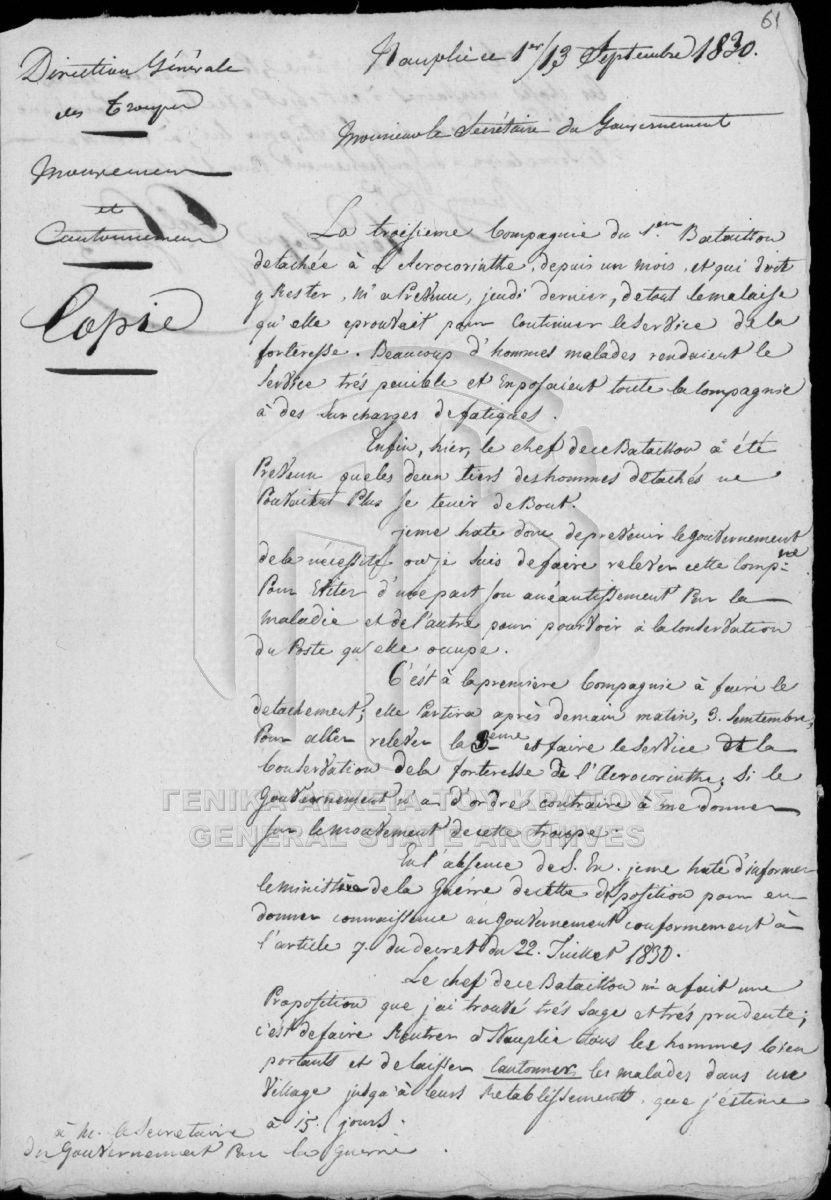 61
Direction Générale
des Troupes
Mouvement
et
Cantonnement
Copie
Nauplie ce 1er/13 Septembre 1830.
Monsieur le Secrétaire du Gouvernement
La troisieme Compagnie du 1er Bataillon
detachée à l'Acrocorinthe, depuis un mois, et qui doit
y Rester, m'a Prevenu, jeudi dernier, de tout le malaise
qu'elle eprouvait pour Continuer le Service de la
forteresse. Beaucoup d'hommes malades rendaient le
Service trés penible et Exposaient toute la Compagnie
à des Surcharges de fatigues.
Enfin, hier, le chef de ce Bataillon a été
Prevenu que les deux tiers des hommes détachés ne
Pouvaient Plus Se tenir de Bout.
je me hate donc de prevenir le gouvernement
de la nécessité ou je Suis de faire relever cette Compnie
Pour Eviter d'une part Son anéantissement Par la
maladie et de l'autre pour pourvoir à la Conservation
du Poste qu'elle occupe.
C'est à la première Compagnie à faire le
detachement; elle Partira après demain matin, 3. Septembre,
Pour aller relever la 3eme et faire le Service de la
Conservation de la forteresse de l'Acrocorinthe; Si le
gouvernement n'a d'ordre contraire à me donner
Sur le mouvement de cette troupe.
ΓΕΝΙΚΑ ΑΡΧΕΙΑ ΤΟΥ ΚΡΑΤΟΥΣ
GENERAL STATE ARCHIVES
En l'absence de S. Ex. je me hate d'informer
le ministère de la Guerre de cette disposition pour en
donner connaissance au gouvernement conformement à
l'article 7. du decret du 22. Juillet 1830.
Le chef de ce Bataillon m'a fait une
Proposition que j'ai trouvé trés Sage et trés prudente;
c'est de faire Rentrer à Nauplie tous les hommes bien
portants et de laisser Cantonner les malades dans un
Village jusqu'à leurs Retablissement que j'estime
à 15. jours.
à M. le Secretaire
du Gouvernement Pour la Guerre